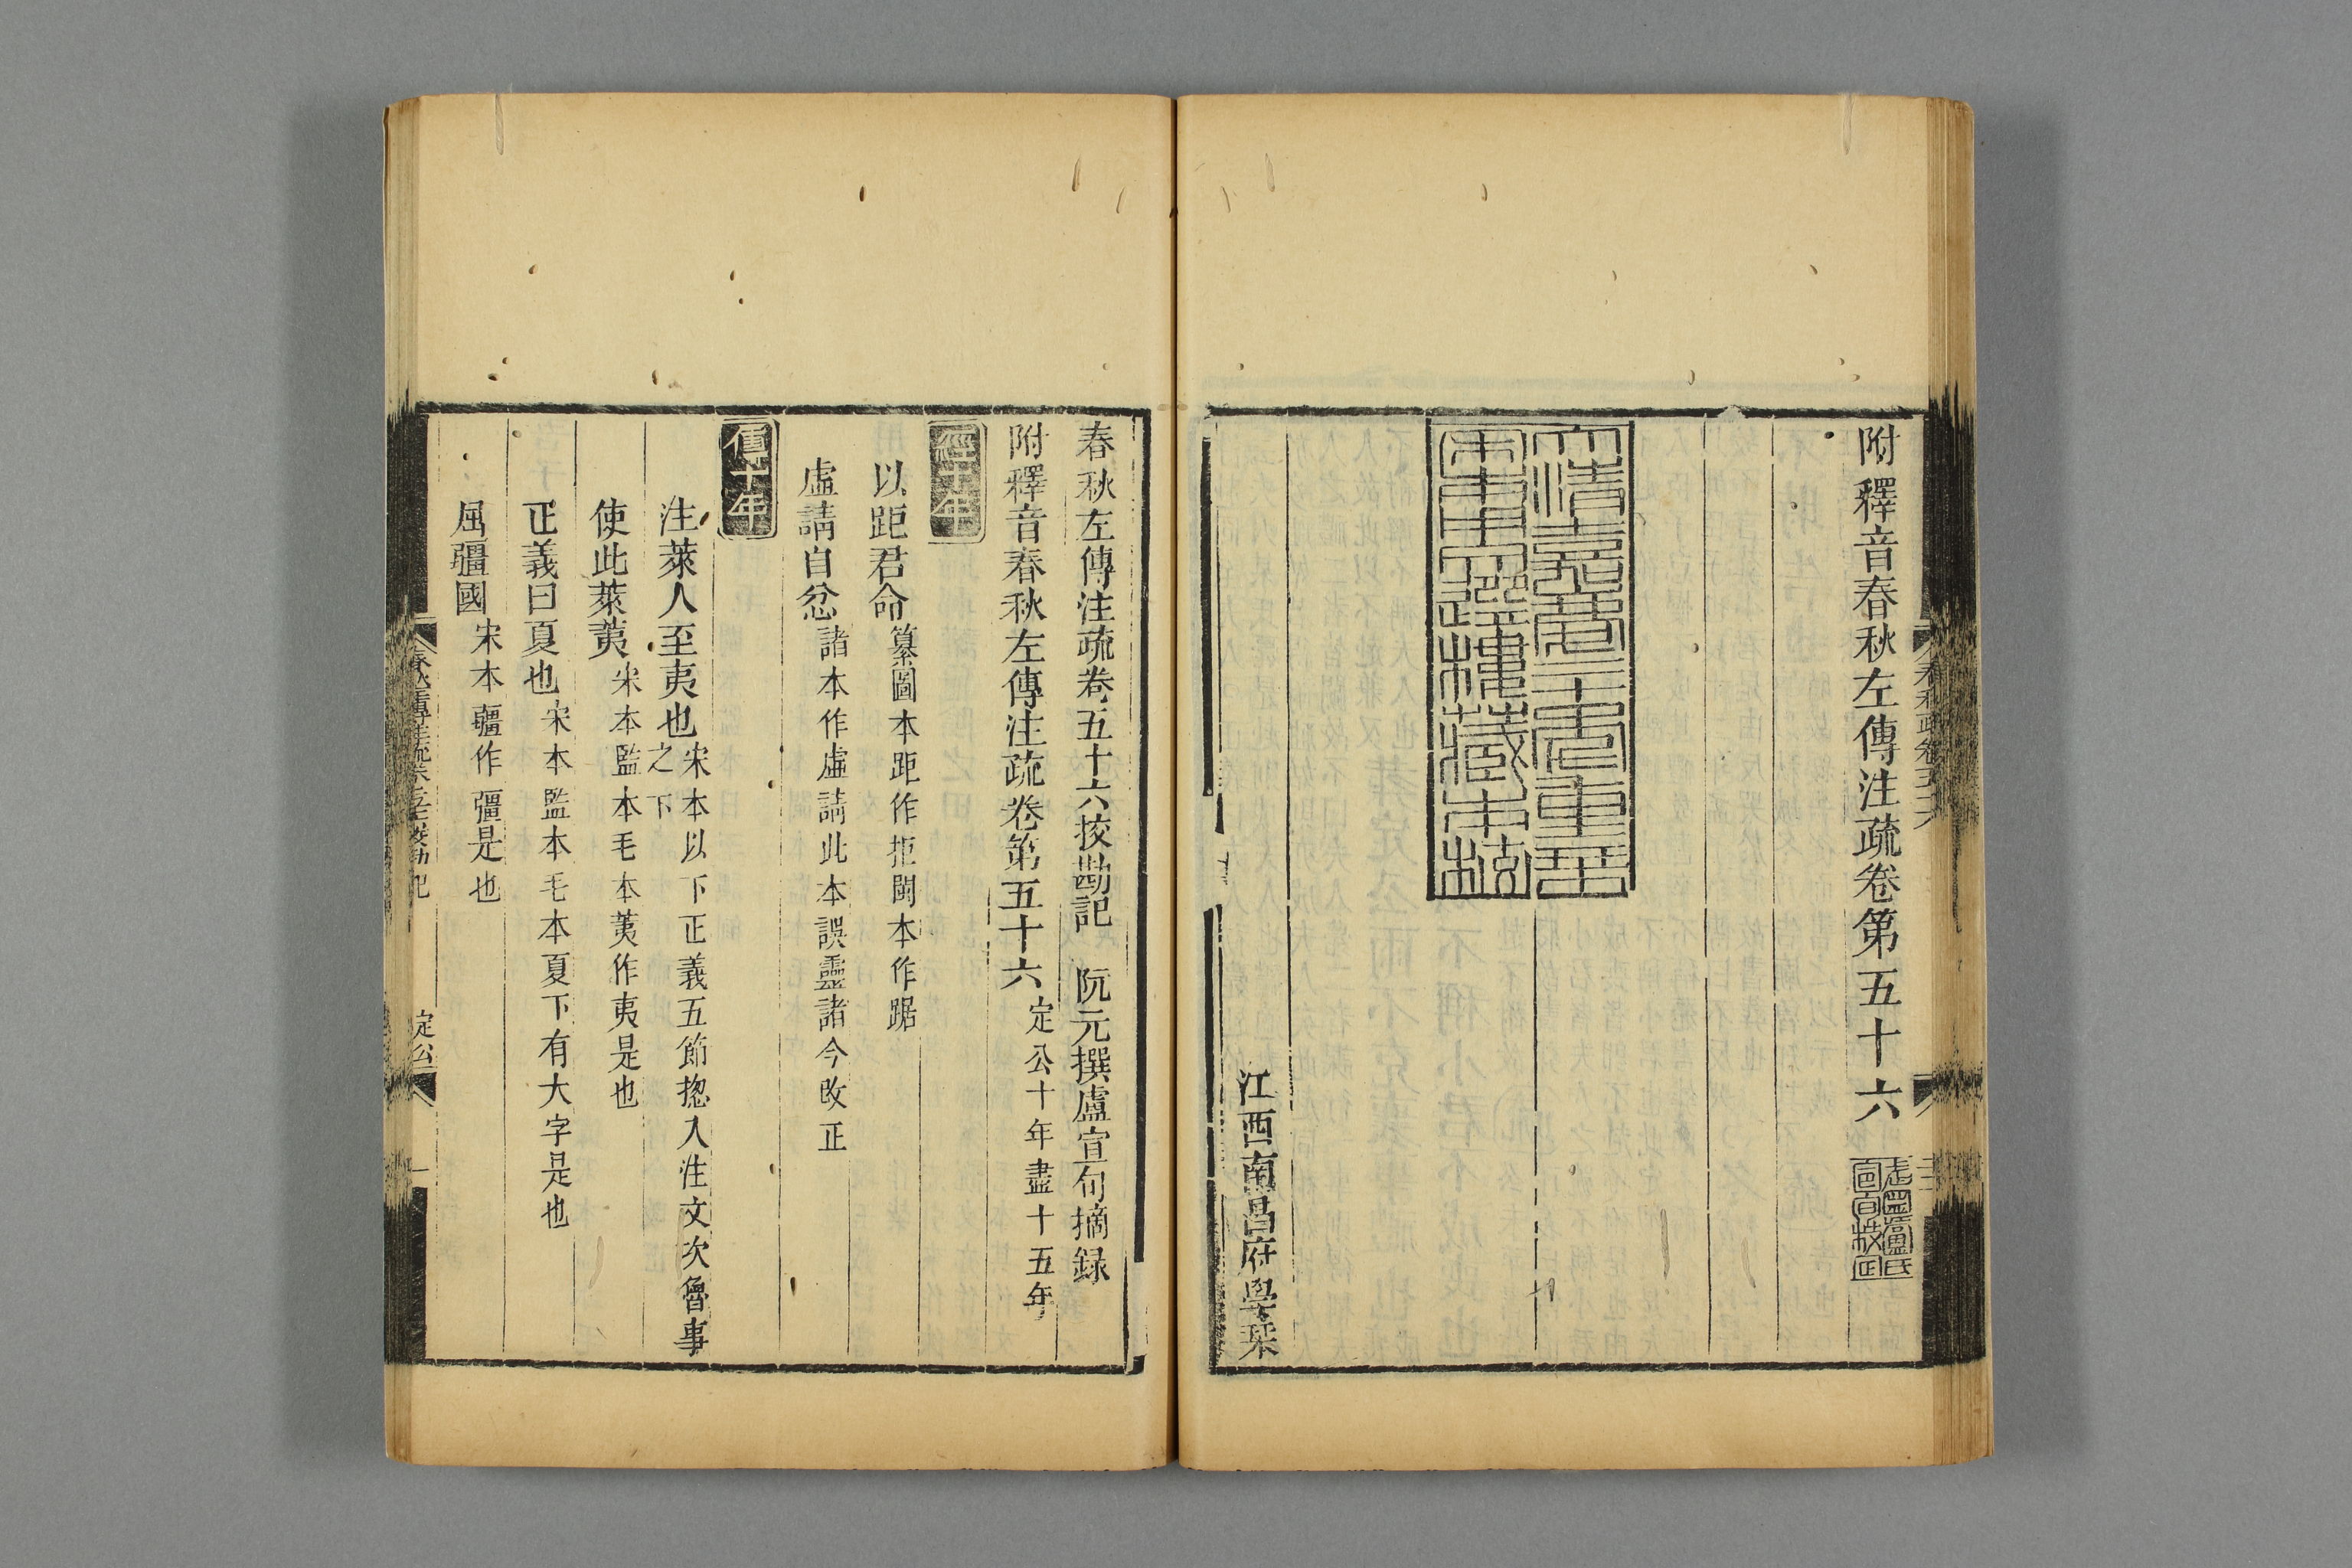 附釋音春秋左傳注疏卷第五十六
江西南昌府學栞
春秋左傳注疏卷五十六挍勘記　阮元撰盧宣旬摘録
附釋音春秋左傳注疏卷第五十六 定公十年盡十五年
經十年
以距君命 纂圖本距作拒閩本作踞
虛請自忿 諸本作虛請此本誤靈諸今改正
傳十年
注萊人至夷也 宋本以下正義五節揔入注文次魯事
之下
使此萊荑 宋本監本毛本荑作夷是也
正義曰夏也 宋本監本毛本夏下有大字是也
屈疆國 宋本疆作彊是也
定公